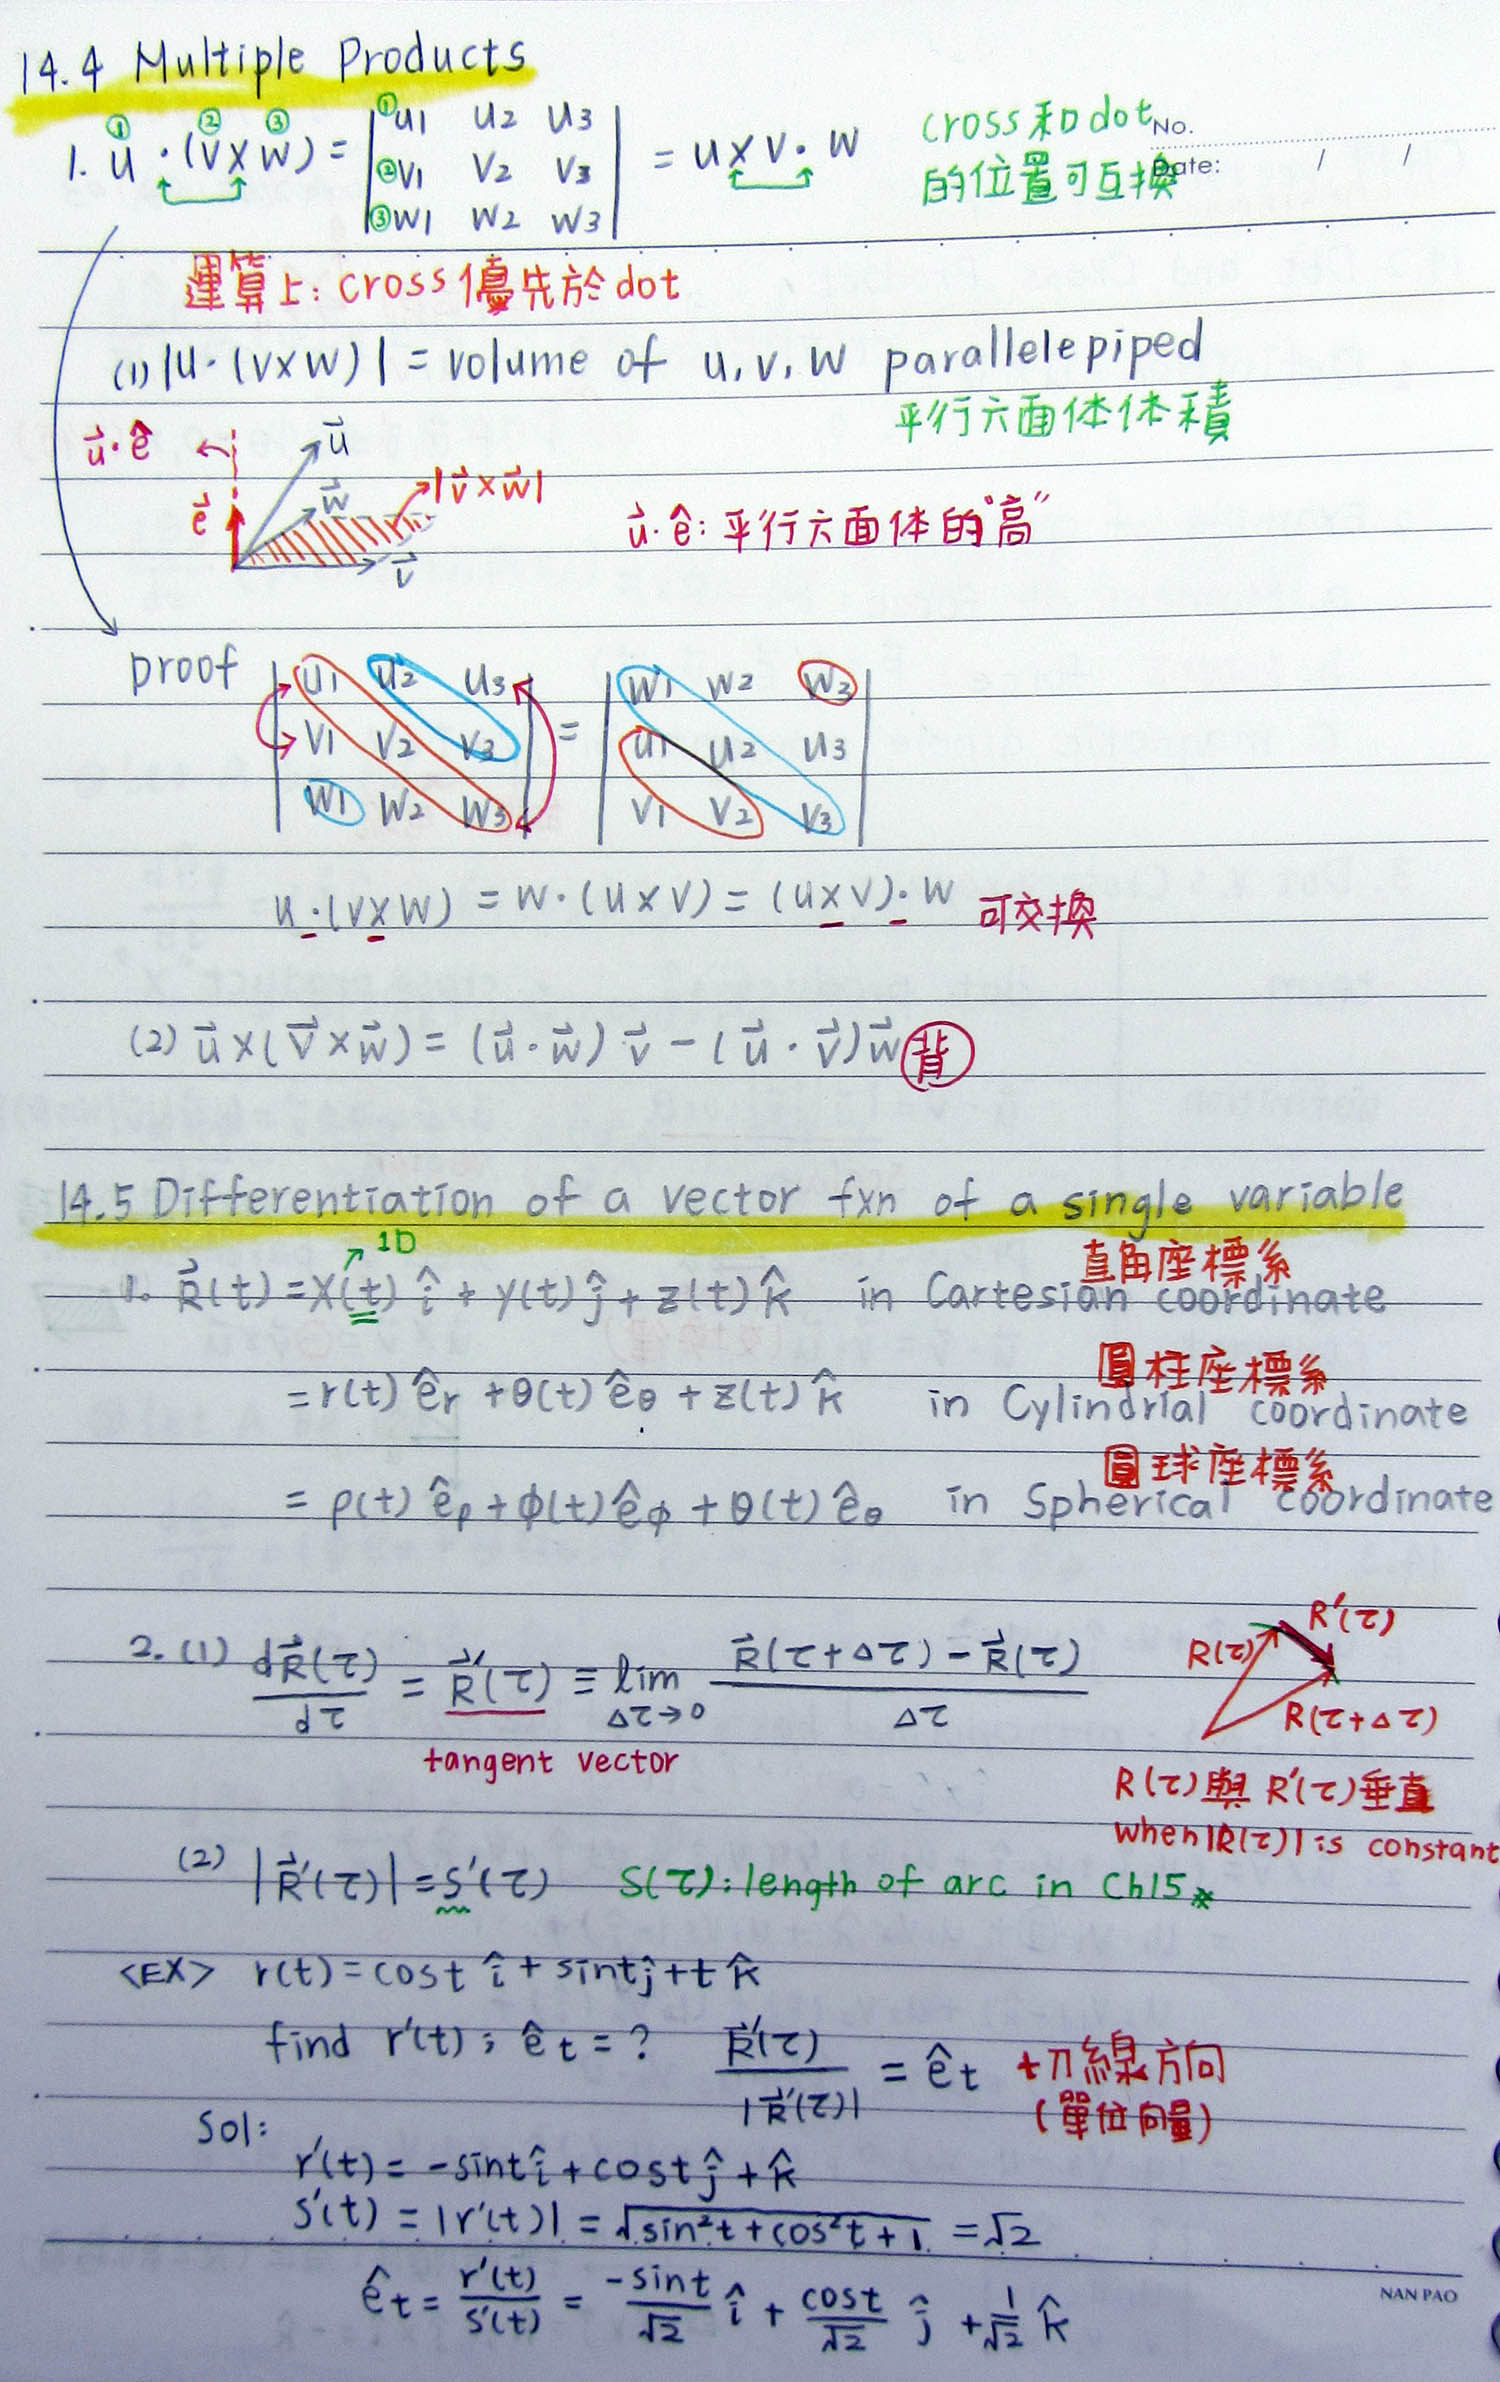 14.4 Multiple Products
1. u · (v × w) = | u1 u2 u3 | = u × v · w
① ② ③
| ①u1 u2 u3 |
| ②v1 v2 v3 |
| ③w1 w2 w3 |
cross和dot
的位置可互換
No.
Date: / /
運算上: cross優先於dot
(1) |u·(v×w)| = volume of u, v, w parallelepiped
平行六面体体積
u⃗·ê
u⃗
w⃗
|v⃗×w⃗|
e⃗
v⃗
u⃗·ê: 平行六面体的"高"
proof
| u1 u2 u3 | = | w1 w2 w3 |
| v1 v2 v3 | | u1 u2 u3 |
| w1 w2 w3 | | v1 v2 v3 |
u·(v×w) = w·(u×v) = (u×v)·w 可交換
(2) u⃗×(v⃗×w⃗) = (u⃗·w⃗)v⃗ − (u⃗·v⃗)w⃗ 背
14.5 Differentiation of a vector fxn of a single variable
1D
直角座標系
1. R⃗(t) = x(t)î + y(t)ĵ + z(t)k̂ in Cartesian coordinate
圓柱座標系
= r(t)êr + θ(t)êθ + z(t)k̂ in Cylindrial coordinate
圓球座標系
= ρ(t)êρ + ϕ(t)êϕ + θ(t)êθ in Spherical coordinate
2. (1) dR⃗(τ)/dτ = R⃗′(τ) ≡ lim Δτ→0 (R⃗(τ+Δτ) − R⃗(τ))/Δτ
tangent vector
R(τ)
R′(τ)
R(τ+Δτ)
R(τ)與R′(τ)垂直
when |R(τ)| is constant
(2) |R⃗′(τ)| = s′(τ) S(τ): length of arc in Ch15*
<EX> r(t) = cost î + sint ĵ + t k̂
find r′(t); êt = ? R⃗′(τ)/|R⃗′(τ)| = êt 切線方向
(單位向量)
Sol:
r′(t) = -sint î + cost ĵ + k̂
s′(t) = |r′(t)| = √(sin²t + cos²t + 1) = √2
êt = r′(t)/s′(t) = -sint/√2 î + cost/√2 ĵ + 1/√2 k̂
NAN PAO